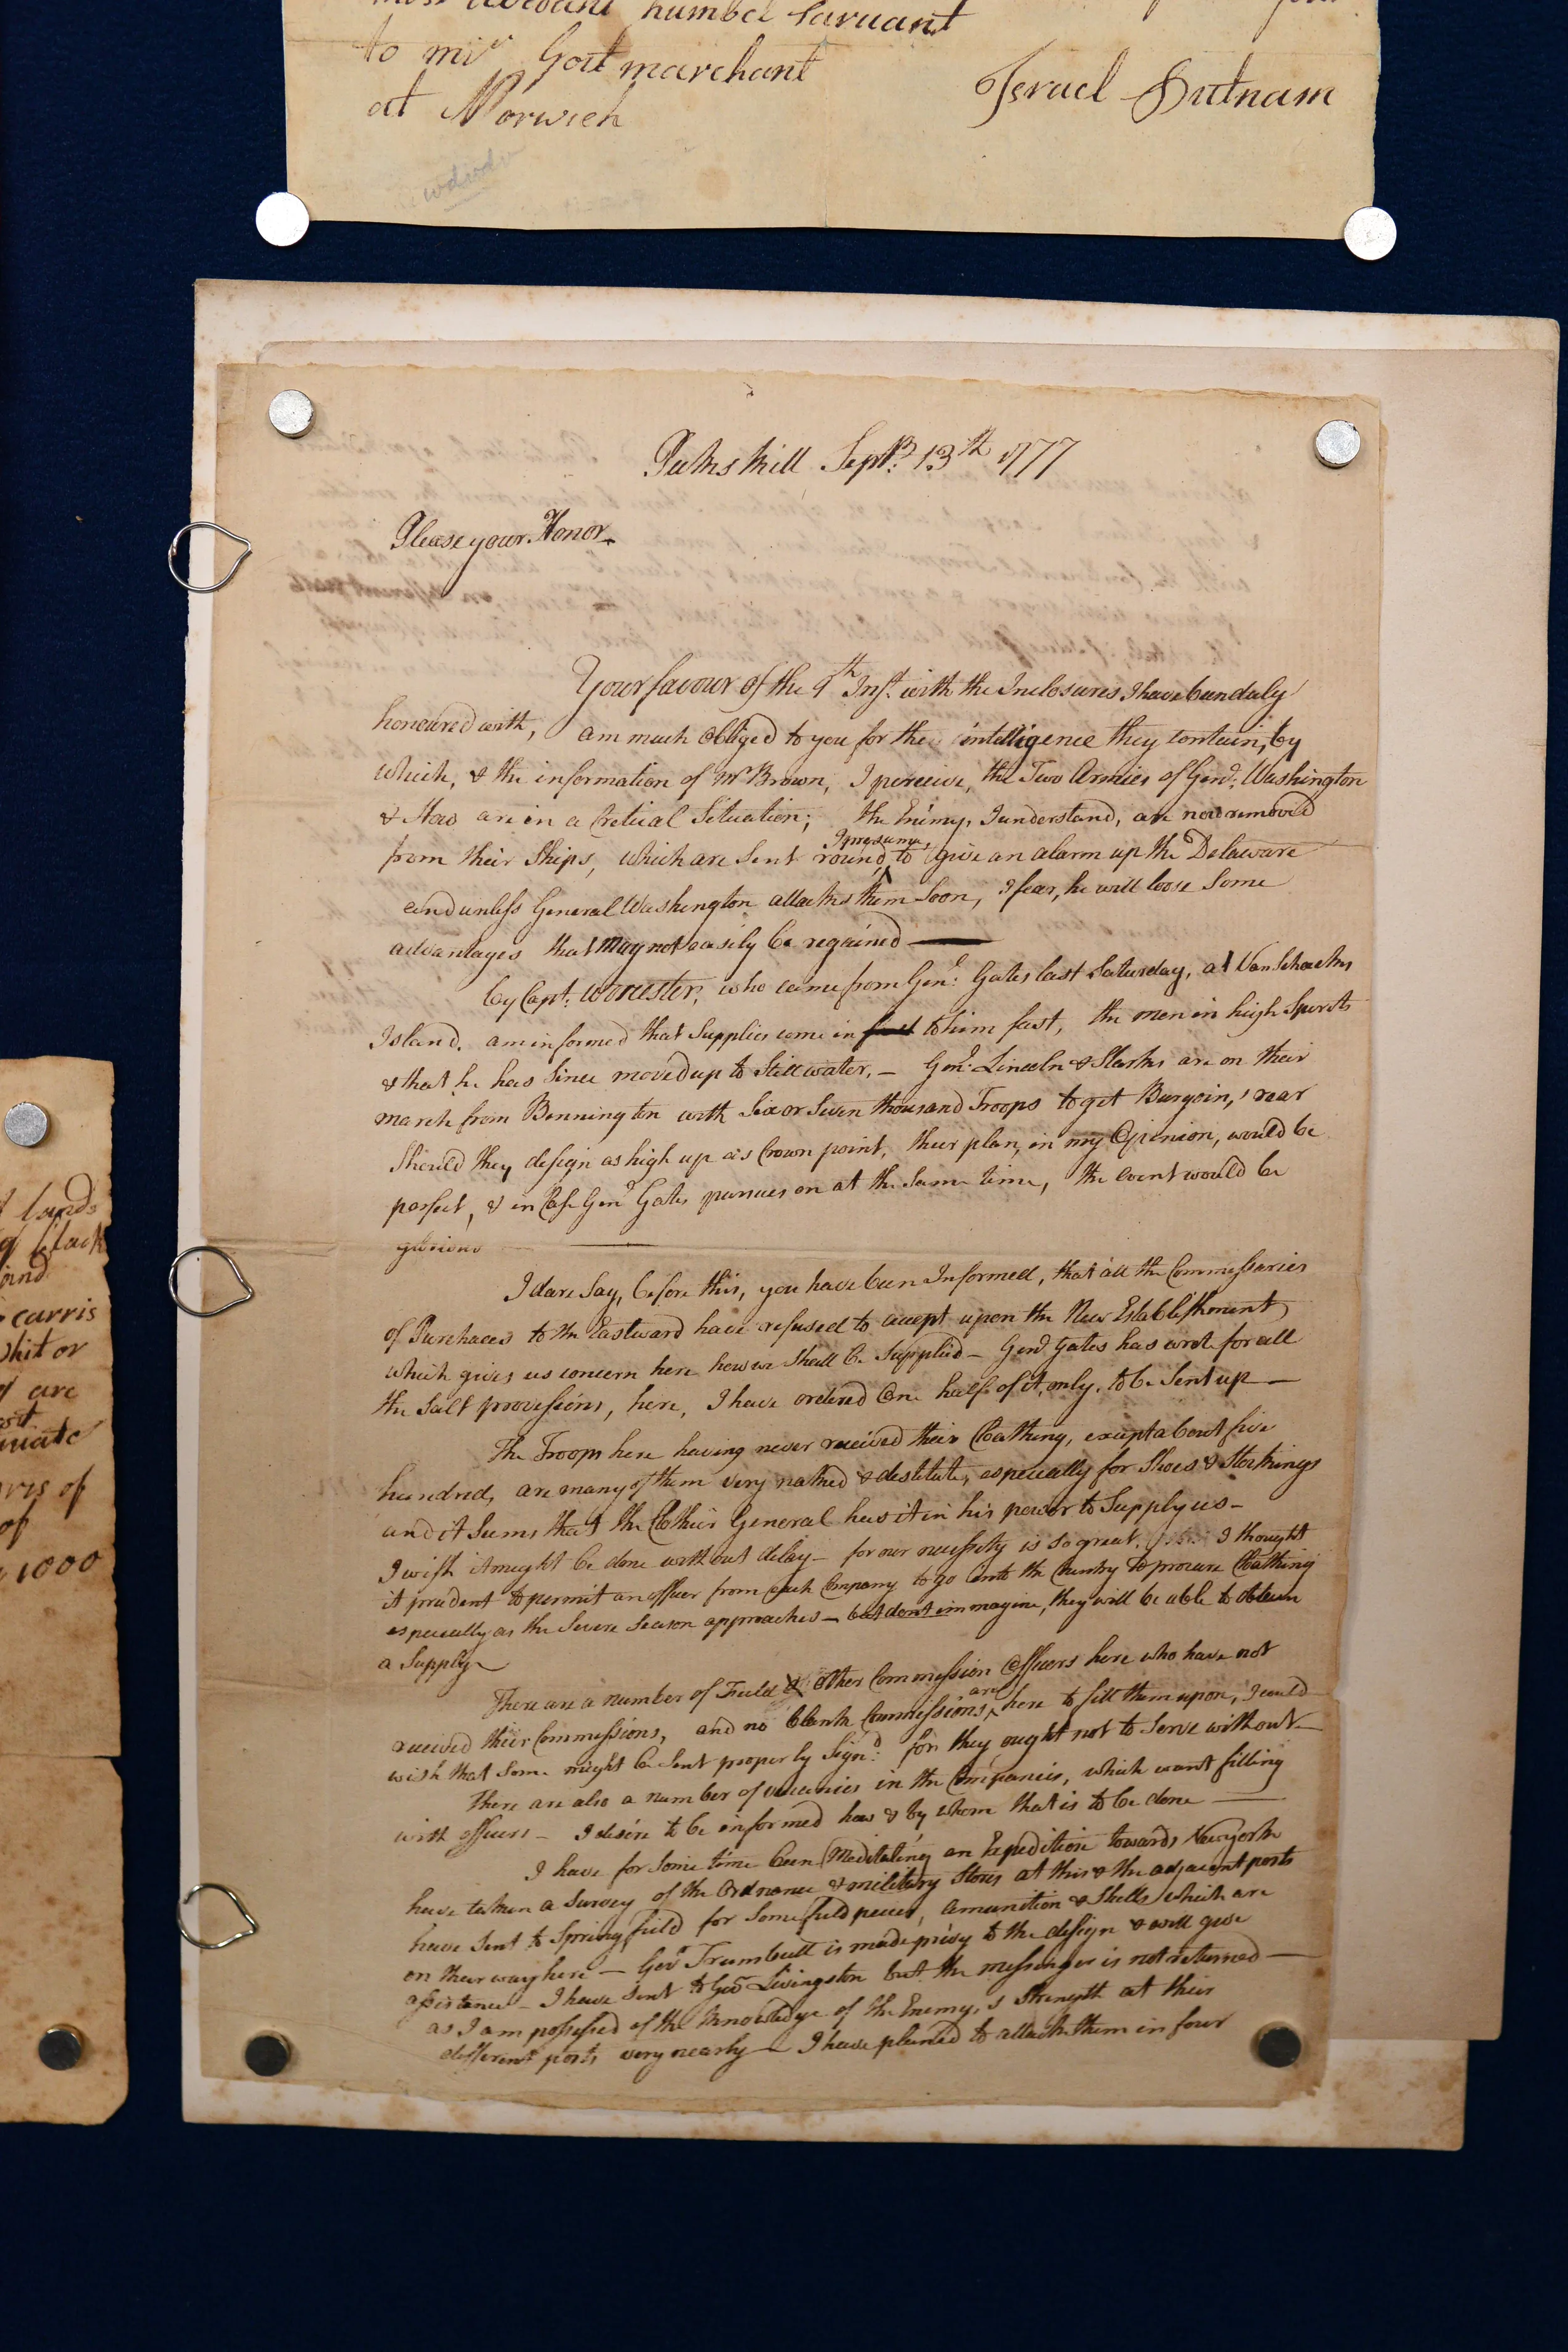 most obedant humbel sarvant
to mr Gort marchant
at Norwich
Israel Putnam
Peeks kill Sepr. 13th 1777
Please your Honor
Your favour of the 9th Inst. with the Inclosures I have been duly
honoured with, am much obliged to you for the intelligence they contain, by
which, & the information of Mr Brown, I perceive, the Two Armies of Genl. Washington
& How are in a Critical Situation; the Enemy, I understand, are now removed
from their Ships, which are sent round, I presume, to give an alarm up the Delaware
and unless General Washington attacks them soon, I fear, he will loose some
advantages that may not easily be regained —
by Capt. Worcester, who came from Genl. Gates last Saturday, at Van Schacks
Island. am informed that Supplies come in fast to him fast, the men in high Spirits
& that he has since moved up to Still water, — Genl. Lincoln & Starks are on their
march from Bennington with Six or Seven thousand Troops to get Burgoin,s rear
Should they design as high up as Crown point, their plan, in my Opinion, would be
perfect, & in Case Genl Gates pursues on at the same time, the event would be
glorious —
I dare say, before this, you have been Informed, that all the Commissaries
of Purchaces to the Eastward have refused to accept upon the New Establishment,
which gives us concern here how we shall be Supplied — Genl Gates has wrote for all
the Salt provisions, here, I have ordered One half of it, only, to be Sent up —
The Troops here having never received their Cloathing, except about five
hundred, are many of them very naked & destitute, especially for Shoes & Stockings
and it seems that the Clothier General has it in his power to Supply us —
I wish it might be done without delay — for our necessity is so great, I thought
it prudent to permit an officer from each Company to go into the Country to procure Cloathing
especially as the Severe Season approaches — but dont immagine, they will be able to obtain
a Supply —
There are a number of Field & other Commission Officers here who have not
received their Commissions, and no blank Commissions are here to fill them upon, I could
wish that some might be Sent properly Sign.d for they ought not to serve without —
There are also a number of vacancies in the Companies, which want filling
with officers — I desire to be informed how & by whom that is to be done —
I have for some time been Meditating an Expedition towards New york
have taken a Survey of the Ordnance & military Stores at this & the adjacent posts
have sent to Springfield for some field pieces, Amunition & Shells which are
on their way here — Gov Trumbull is made privy to the design & will give
assistance — I have sent to Gov Livingston but the messenger is not returned —
as I am possessed of the knowledge of the Enemy,s Strength at their
different posts very nearly — I have planed to attack them in four
lands
black
and
carris
whit or
of are
of
1000